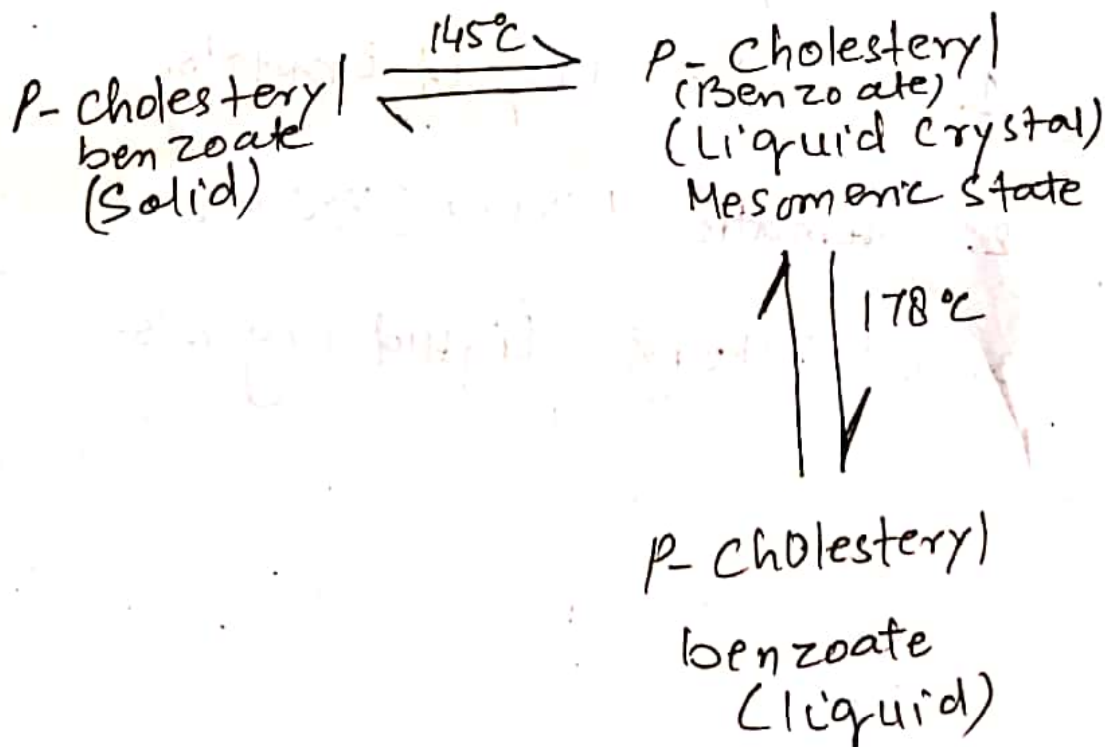 145°C
P-cholesteryl
benzoate
(Solid)
P-Cholesteryl
(Benzoate)
(Liquid Crystal)
Mesomeric State
178°C
P-Cholesteryl
benzoate
(liquid)